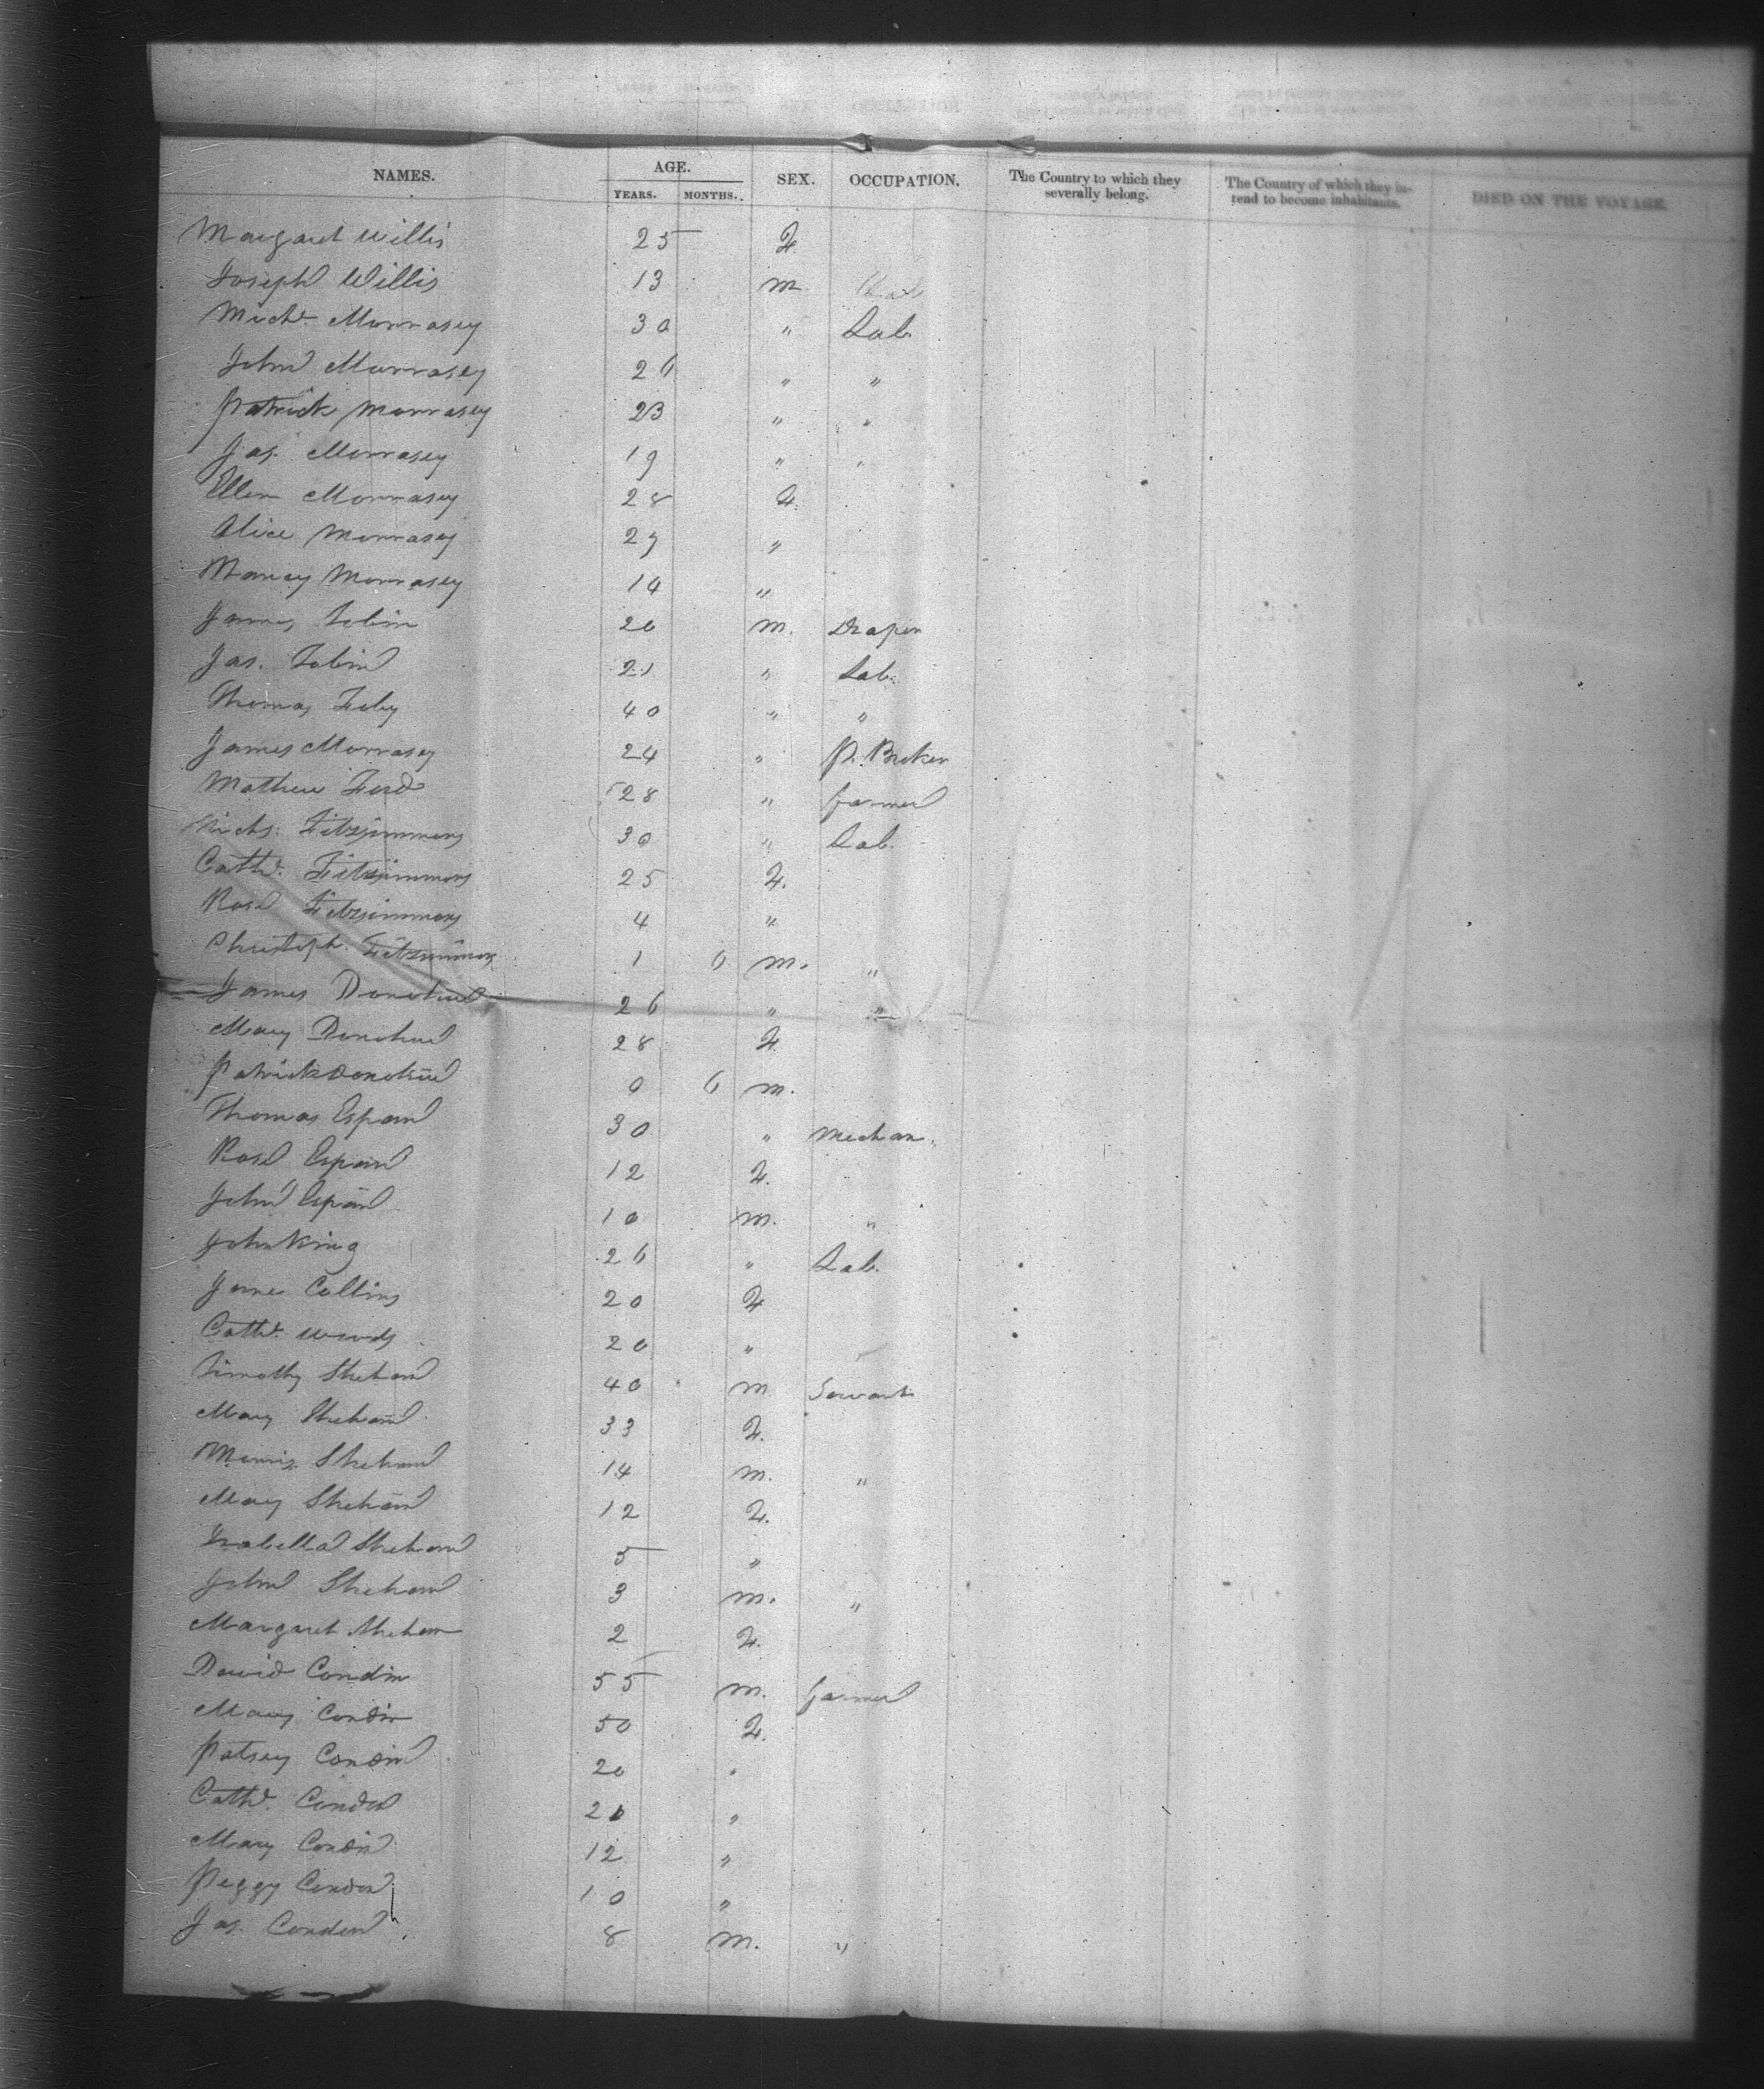 NAMES. AGE. SEX. OCCUPATION. The Country to which they severally belong. The Country of which they intend to become inhabitants. DIED ON THE VOYAGE
YEARS. MONTHS.
Margaret Willis 25 F.
Joseph Willis 13 m
Michl. Morrasey 30 " Lab.
John Morrasey 26 " "
Patrick Morrasey 23 " "
Jas. Morrasey 19 " "
Ellen Morrasey 28 F.
Alice Morrasey 27 "
Morrasey 14 "
James Tobin 20 m. Draper
Jas. Tobin 21 " Lab.
Thomas 40 " "
James Morrasey 24 " P. Broker
Mathew Ford 28 " farmer
Michs. Fitzsimmons 30 " Lab.
Cathe. Fitzsimmons 25 F.
Rose Fitzsimmons 4 "
Christoph. Fitzsimmons 1 6 m. "
James Donohue 26 " "
Mary Donohue 28 F.
Patrick Donohue 0 6 m.
Thomas Espaw 30 " Mechan.
Rose Espaw 12 F.
John Espaw 10 m. "
John King 26 " Lab.
Jane Collins 20 F
Cathe. Woods 20 "
Timothy Shehan 40 m Servant
Mary Shehan 33 F.
Morris Shehan 14 m. "
Mary Shehan 12 F.
Isabella Shehan 5 "
John Shehan 3 m. "
Margaret Shehan 2 F.
David Condin 55 m. farmer
Mary Condin 50 F.
Patsey Condin 20 "
Cathe. Conden 20 "
Mary Condin 12 "
Peggy Conden 10 "
Jas. Conden 8 m. "